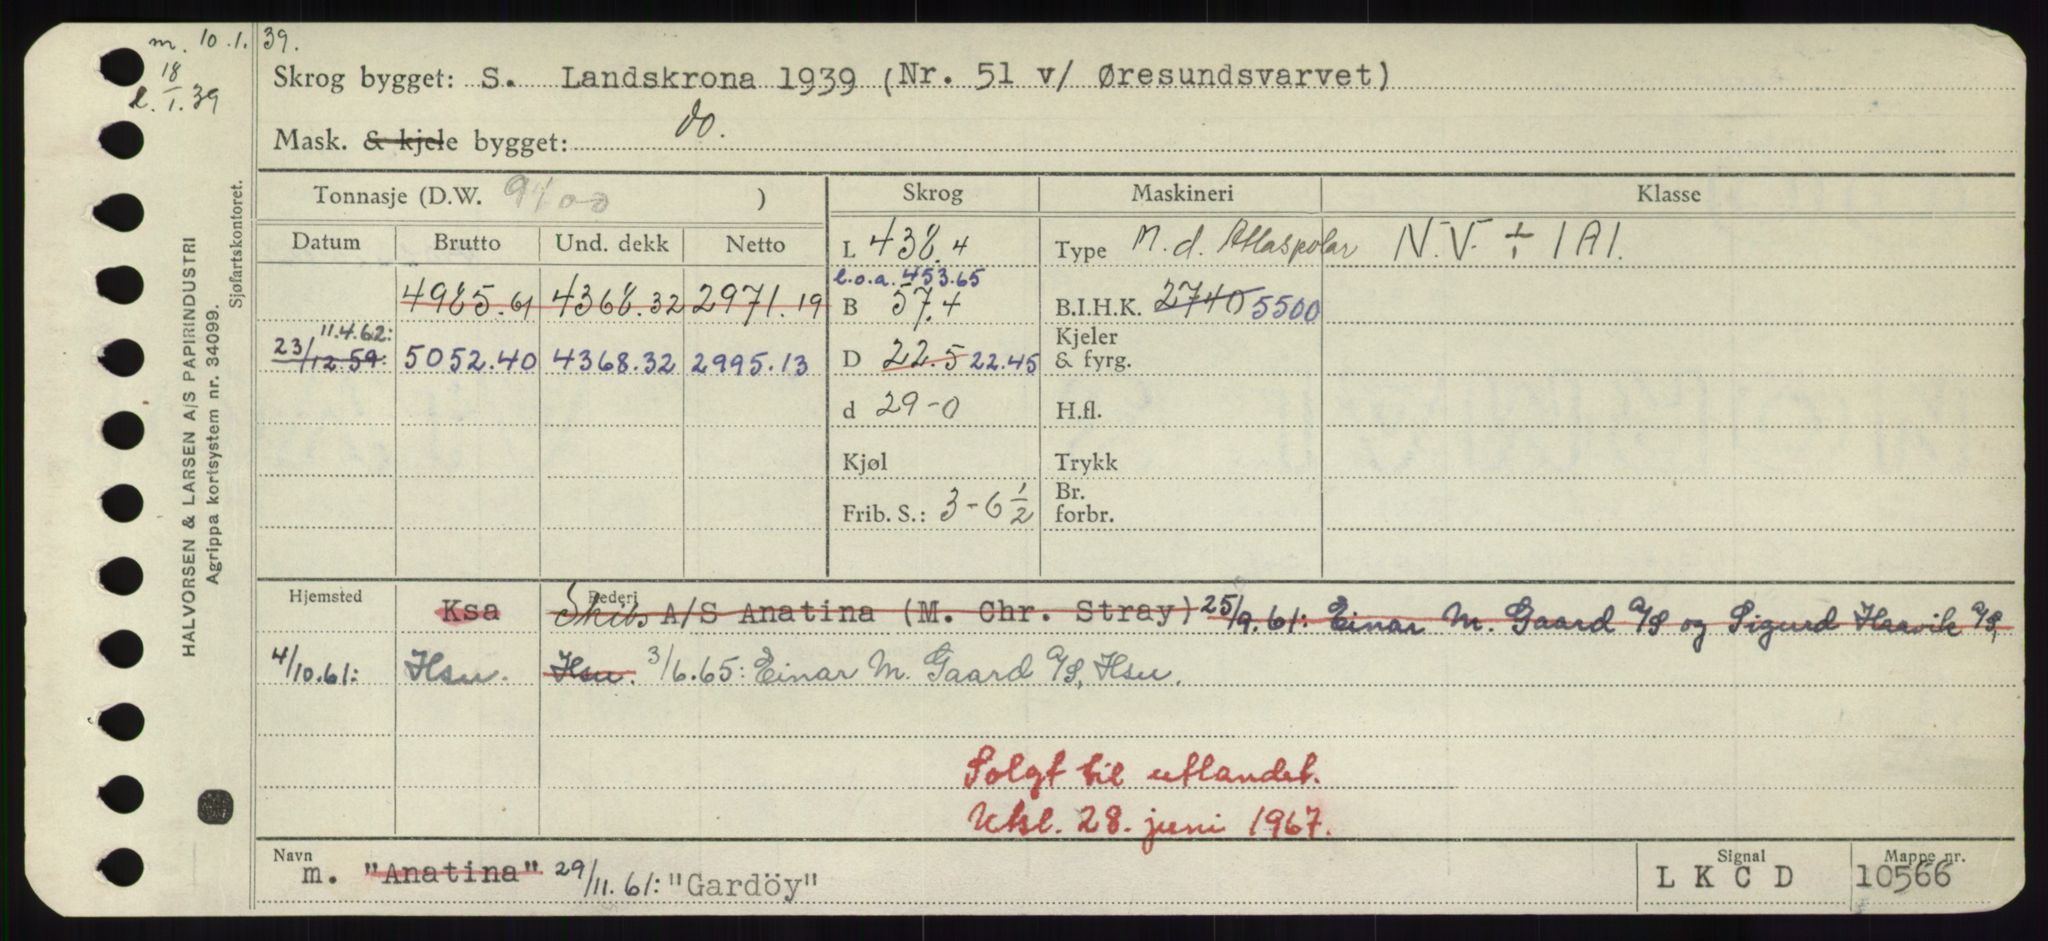 m. 10.1.39.
18
l. I.39
Skrog bygget: S. Landskrona 1939 (Nr. 51 v/ Øresundsvarvet)
Mask. & kjele bygget: do.
HALVORSEN & LARSEN A/S PAPIRINDUSTRI
Agrippa kortsystem nr. 34099.
Sjøfartskontoret.
Tonnasje (D.W. 9400 ) Skrog Maskineri Klasse
Datum Brutto Und. dekk Netto L 438.4 Type M.d. Atlaspolar N.V. ÷ 1A1.
l.o.a. 453.65
4985.61 4368.32 2971.19 B 57.4 B.I.H.K. 2740 5500
11.4.62:
23/12.59: 5052.40 4368.32 2995.13 D 22.5 22.45 Kjeler & fyrg.
d 29-0 H.fl.
Kjøl Trykk
Frib. S.: 3-6 1/2 Br. forbr.
Hjemsted Ksa Rederi Skibs A/S Anatina (M. Chr. Stray) 25/9.61: Einar M. Gaard A/S og Sigurd Haavik A/S,
4/10.61: Hsu. Hsu. 3/6.65: Einar M. Gaard A/S, Hsu.
Solgt til utlandet.
Utsl. 28. juni 1967.
Navn Signal Mappe nr.
m. "Anatina" 29/11.61: "Gardöy" L K C D 10566